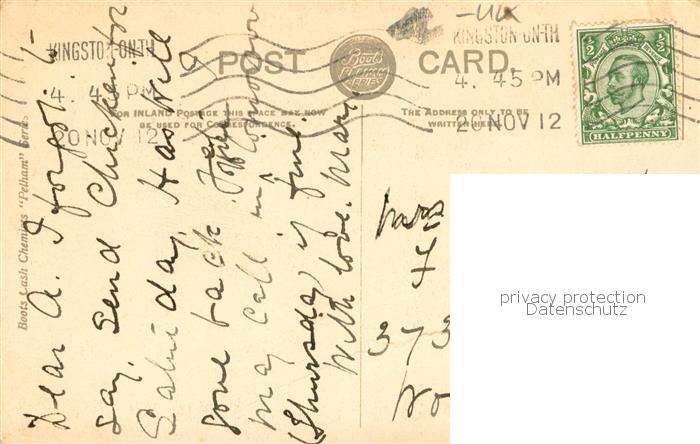 KINGSTON-ON-TH
4. 45 PM
20 NOV 12
POST CARD.
Boots
KINGSTON-ON-TH
4. 45 PM
20 NOV 12
HALFPENNY
FOR INLAND POSTAGE THIS SPACE MAY NOW
BE USED FOR CORRESPONDENCE.
THE ADDRESS ONLY TO BE
WRITTEN HERE.
Boots Cash Chemists "Pelham" Series
Dear A. I forgot to
say, send Chicken for
Saturday. Has Will
gone back
may call in tomorrow
(Thursday) if fine.
With love. Mary.
373
privacy protection
Datenschutz